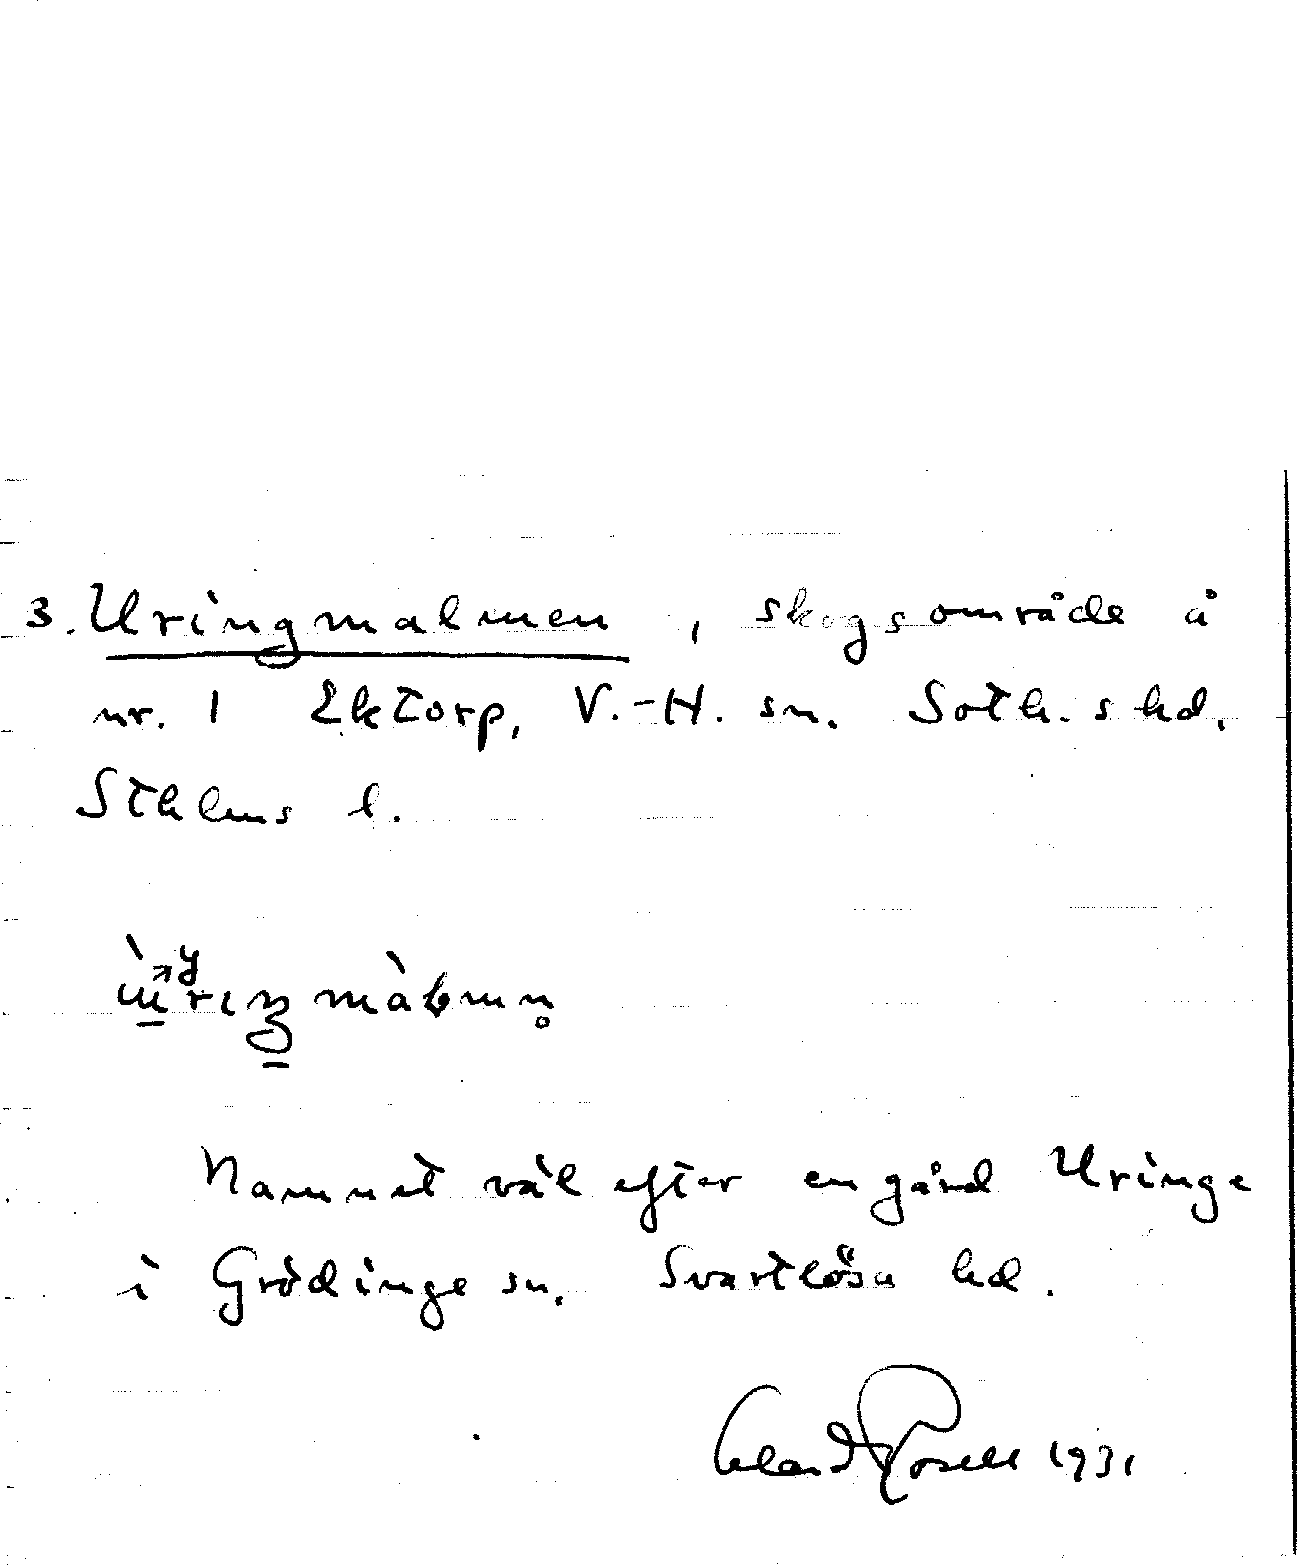 3. Uringmalmen, skogsområde å
nr. 1 Ektorp, V.-H. sn. Soth.s hd.
Sthlms l.
Namnet väl efter en gård Uringe
i Grödinge sn. Svartlösa hd.
Rosell 1931